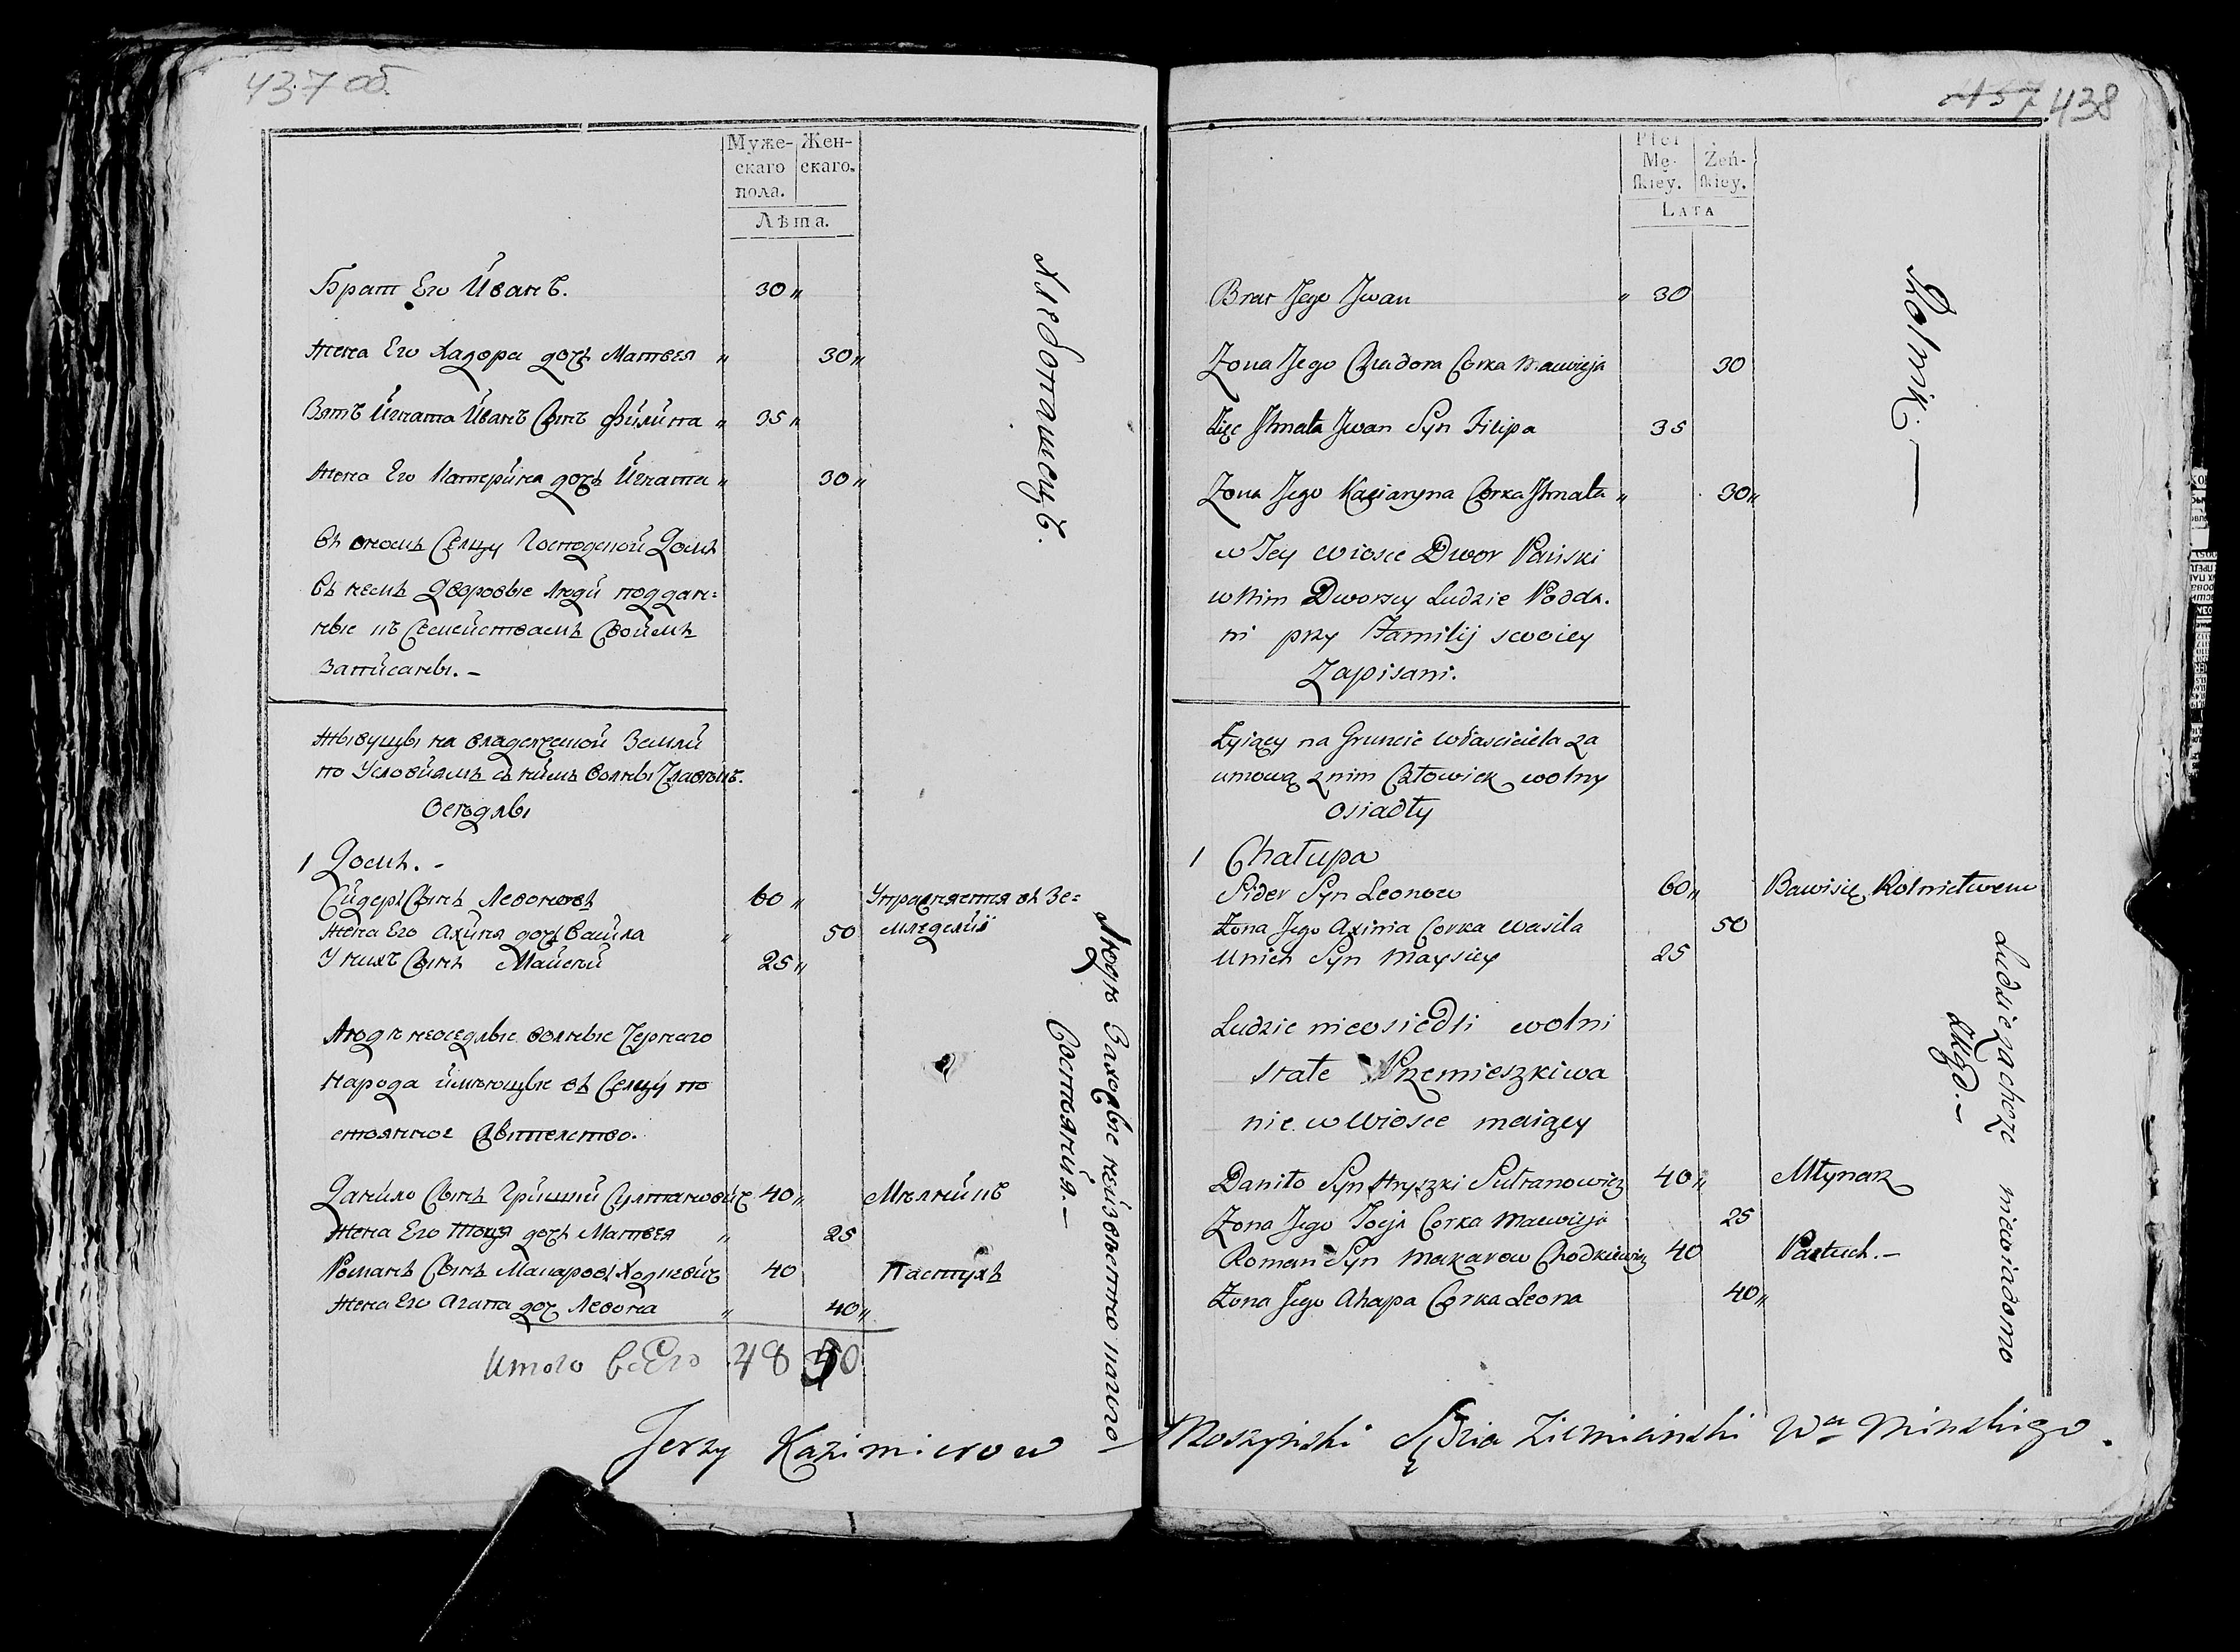 437 об.
Муже-
скаго
пола.
Жен-
скаго.
Лѣта.
Братъ Его Иванъ. 30 „
Жена Его Хадора дочь Матвея „ 30 „
Зять Игната Иванъ Сынъ Филипа „ 35 „
Жена Его Катерина дочь Игната „ 30 „
въ ономъ Селцу Господской Домъ
въ немъ Дворовые Люди поддан=
ные къ Семействамъ Своимъ
Записаны. –
Живущы на владелческой Земли
по Условиямъ съ нимъ волны Чловекъ.
Оседлы
1 Домъ. –
Сидеръ Сынъ Левоновъ 60 „ Упражняется въ Зе=
Жена Его Ахиня дочь Васила „ 50 мледелiи
У нихъ Сынъ Майсей 25 „
Людъ неоседлые волные Чернаго
Народа имеющые въ Селцу по
стоянное Жителство.
Данило Сынъ Гришки Султановичъ 40 „ Мелникъ
Жена Его Тоця дочь Матвея „ 25
Романъ Сынъ Макаровъ Ходкевичъ 40 Пастухъ
Жена Его Агапа доч Левона „ 40 „
Итого всего 48 50
Хлебопашецъ.
Людъ Захожые неизвѣстно какого
Состояния. –
Jerzy Kazimierow
457 438
Płci
Mę-
ſkiey.
Żeń-
ſkiey.
Lata
Brat Jego Jwan „ 30
Zona Jego Chadora Corka Macwieja 30
Zięc Jhnata Jwan Syn Filipa 35
Zona Jego Kaciaryna Corka Jhnata „ 30 „
w Tey wiosce Dwor Pański
w Nim Dworscy Ludzie Podda.
ni przy Familij swoiey
Zapisani.
Zyiący na Gruncie Właściciela za
umową z nim Człowiek wolny
osiadły
1 Chałupa
Sider Syn Leonow 60 „ Bawi się Rolnictwem
Zona Jego Axinia Corka Wasila 50
U nich Syn Maysiey 25
Ludzie nieosiedli wolni
stałe Przemieszkiwa
nie w Wiosce maiący
Daniło Syn Hryszki Sułtanowicz 40 „ Młynarz
Zona Jego Tocja Corka Macwieja 25
Roman Syn Makarow Chodkiewicz 40 Pastuch. –
Zona Jego Ahapa Corka Leona 40 „
Rolnik. —
Ludzie zachoże niewiadomo
skąd. –
Moszyński Sędzia Ziemiański Wa Minskiego.